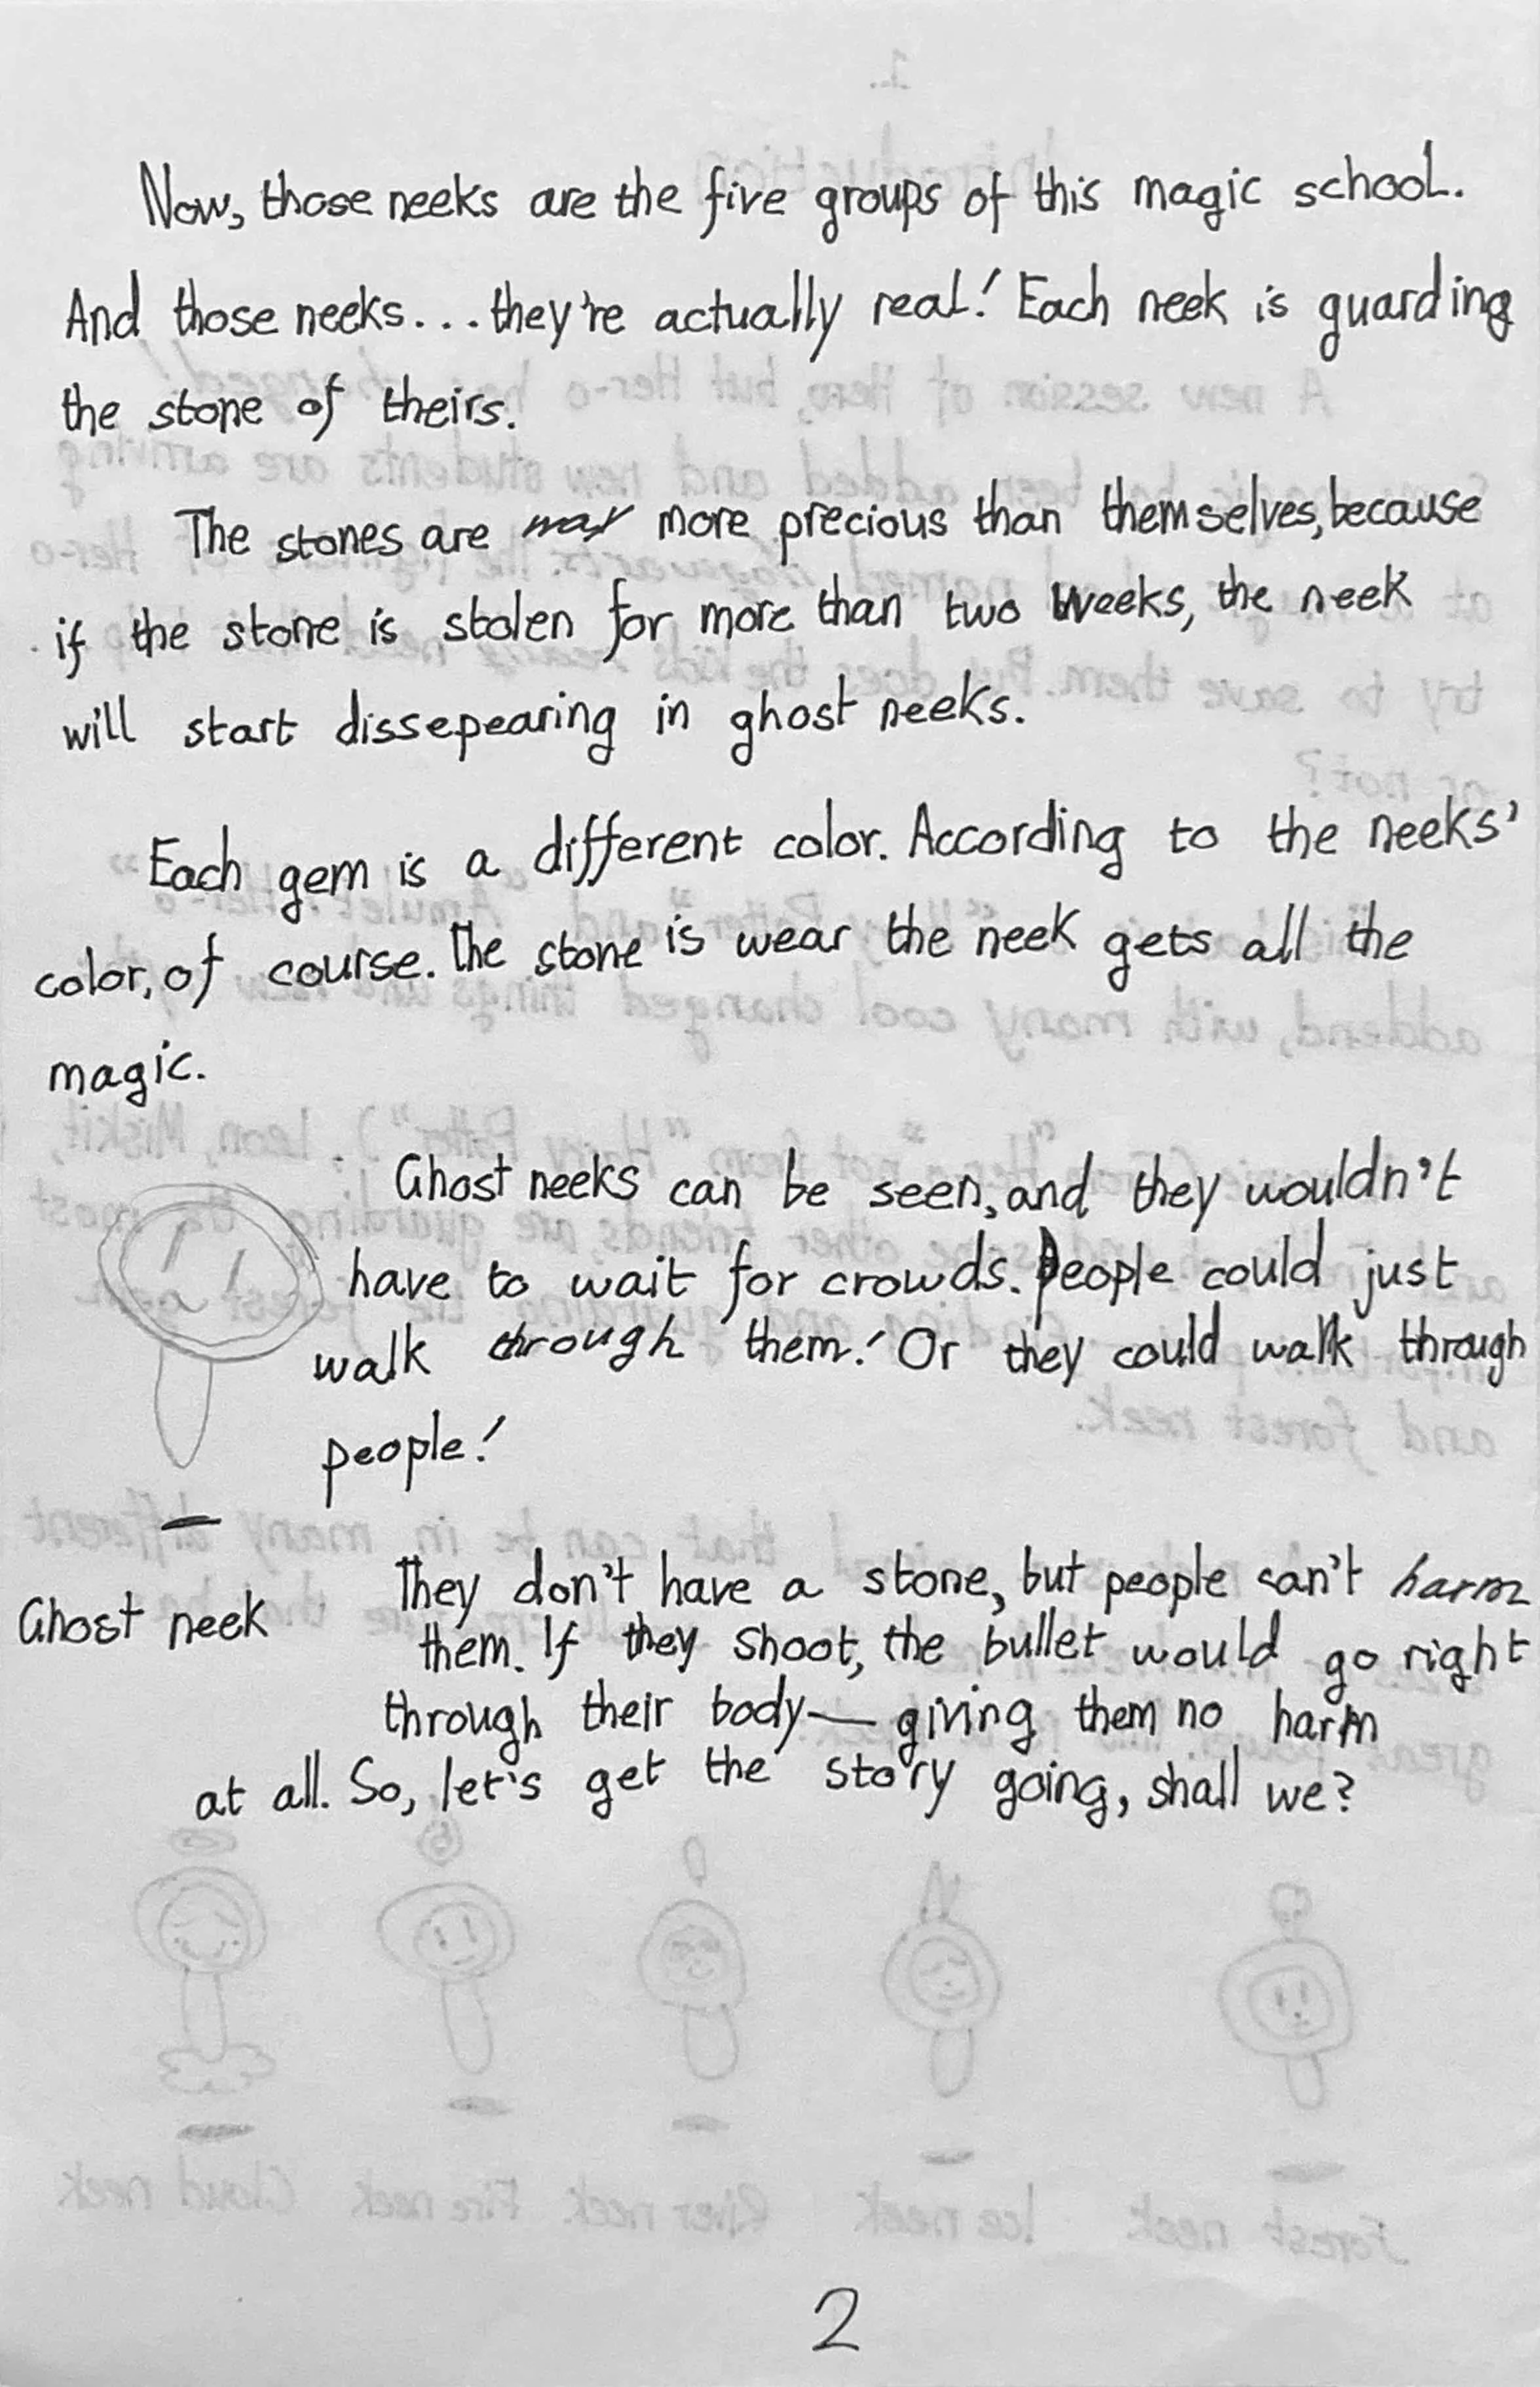 Now, those neeks are the five groups of this magic school.
And those neeks... they're actually real! Each neek is guarding
the stone of theirs.
The stones are way more precious than themselves, because
if the stone is stolen for more than two weeks, the neek
will start dissepearing in ghost neeks.
Each gem is a different color. According to the neeks'
color, of course. The stone is wear the neek gets all the
magic.
Ghost neeks can be seen, and they wouldn't
have to wait for crowds. People could just
walk through them! Or they could walk through
people!
Ghost neek
They don't have a stone, but people can't harm
them. If they shoot, the bullet would go right
through their body— giving them no harm
at all. So, let's get the story going, shall we?
Forest neek Ice neek River neek Fire neek Cloud neek
2